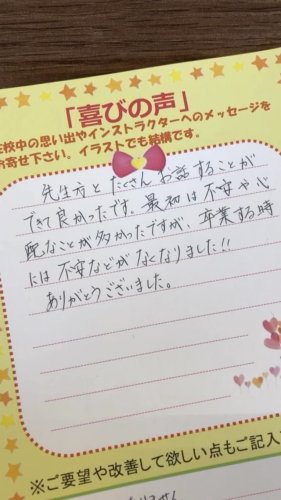 「喜びの声」
在校中の思い出やインストラクターへのメッセージを
お寄せ下さい。イラストでも結構です。
先生方とたくさんお話することが
できて良かったです。最初は不安や心
配なことが多かったですが、卒業する時
には不安などがなくなりました!!
ありがとうございました。
※ご要望や改善して欲しい点もご記入